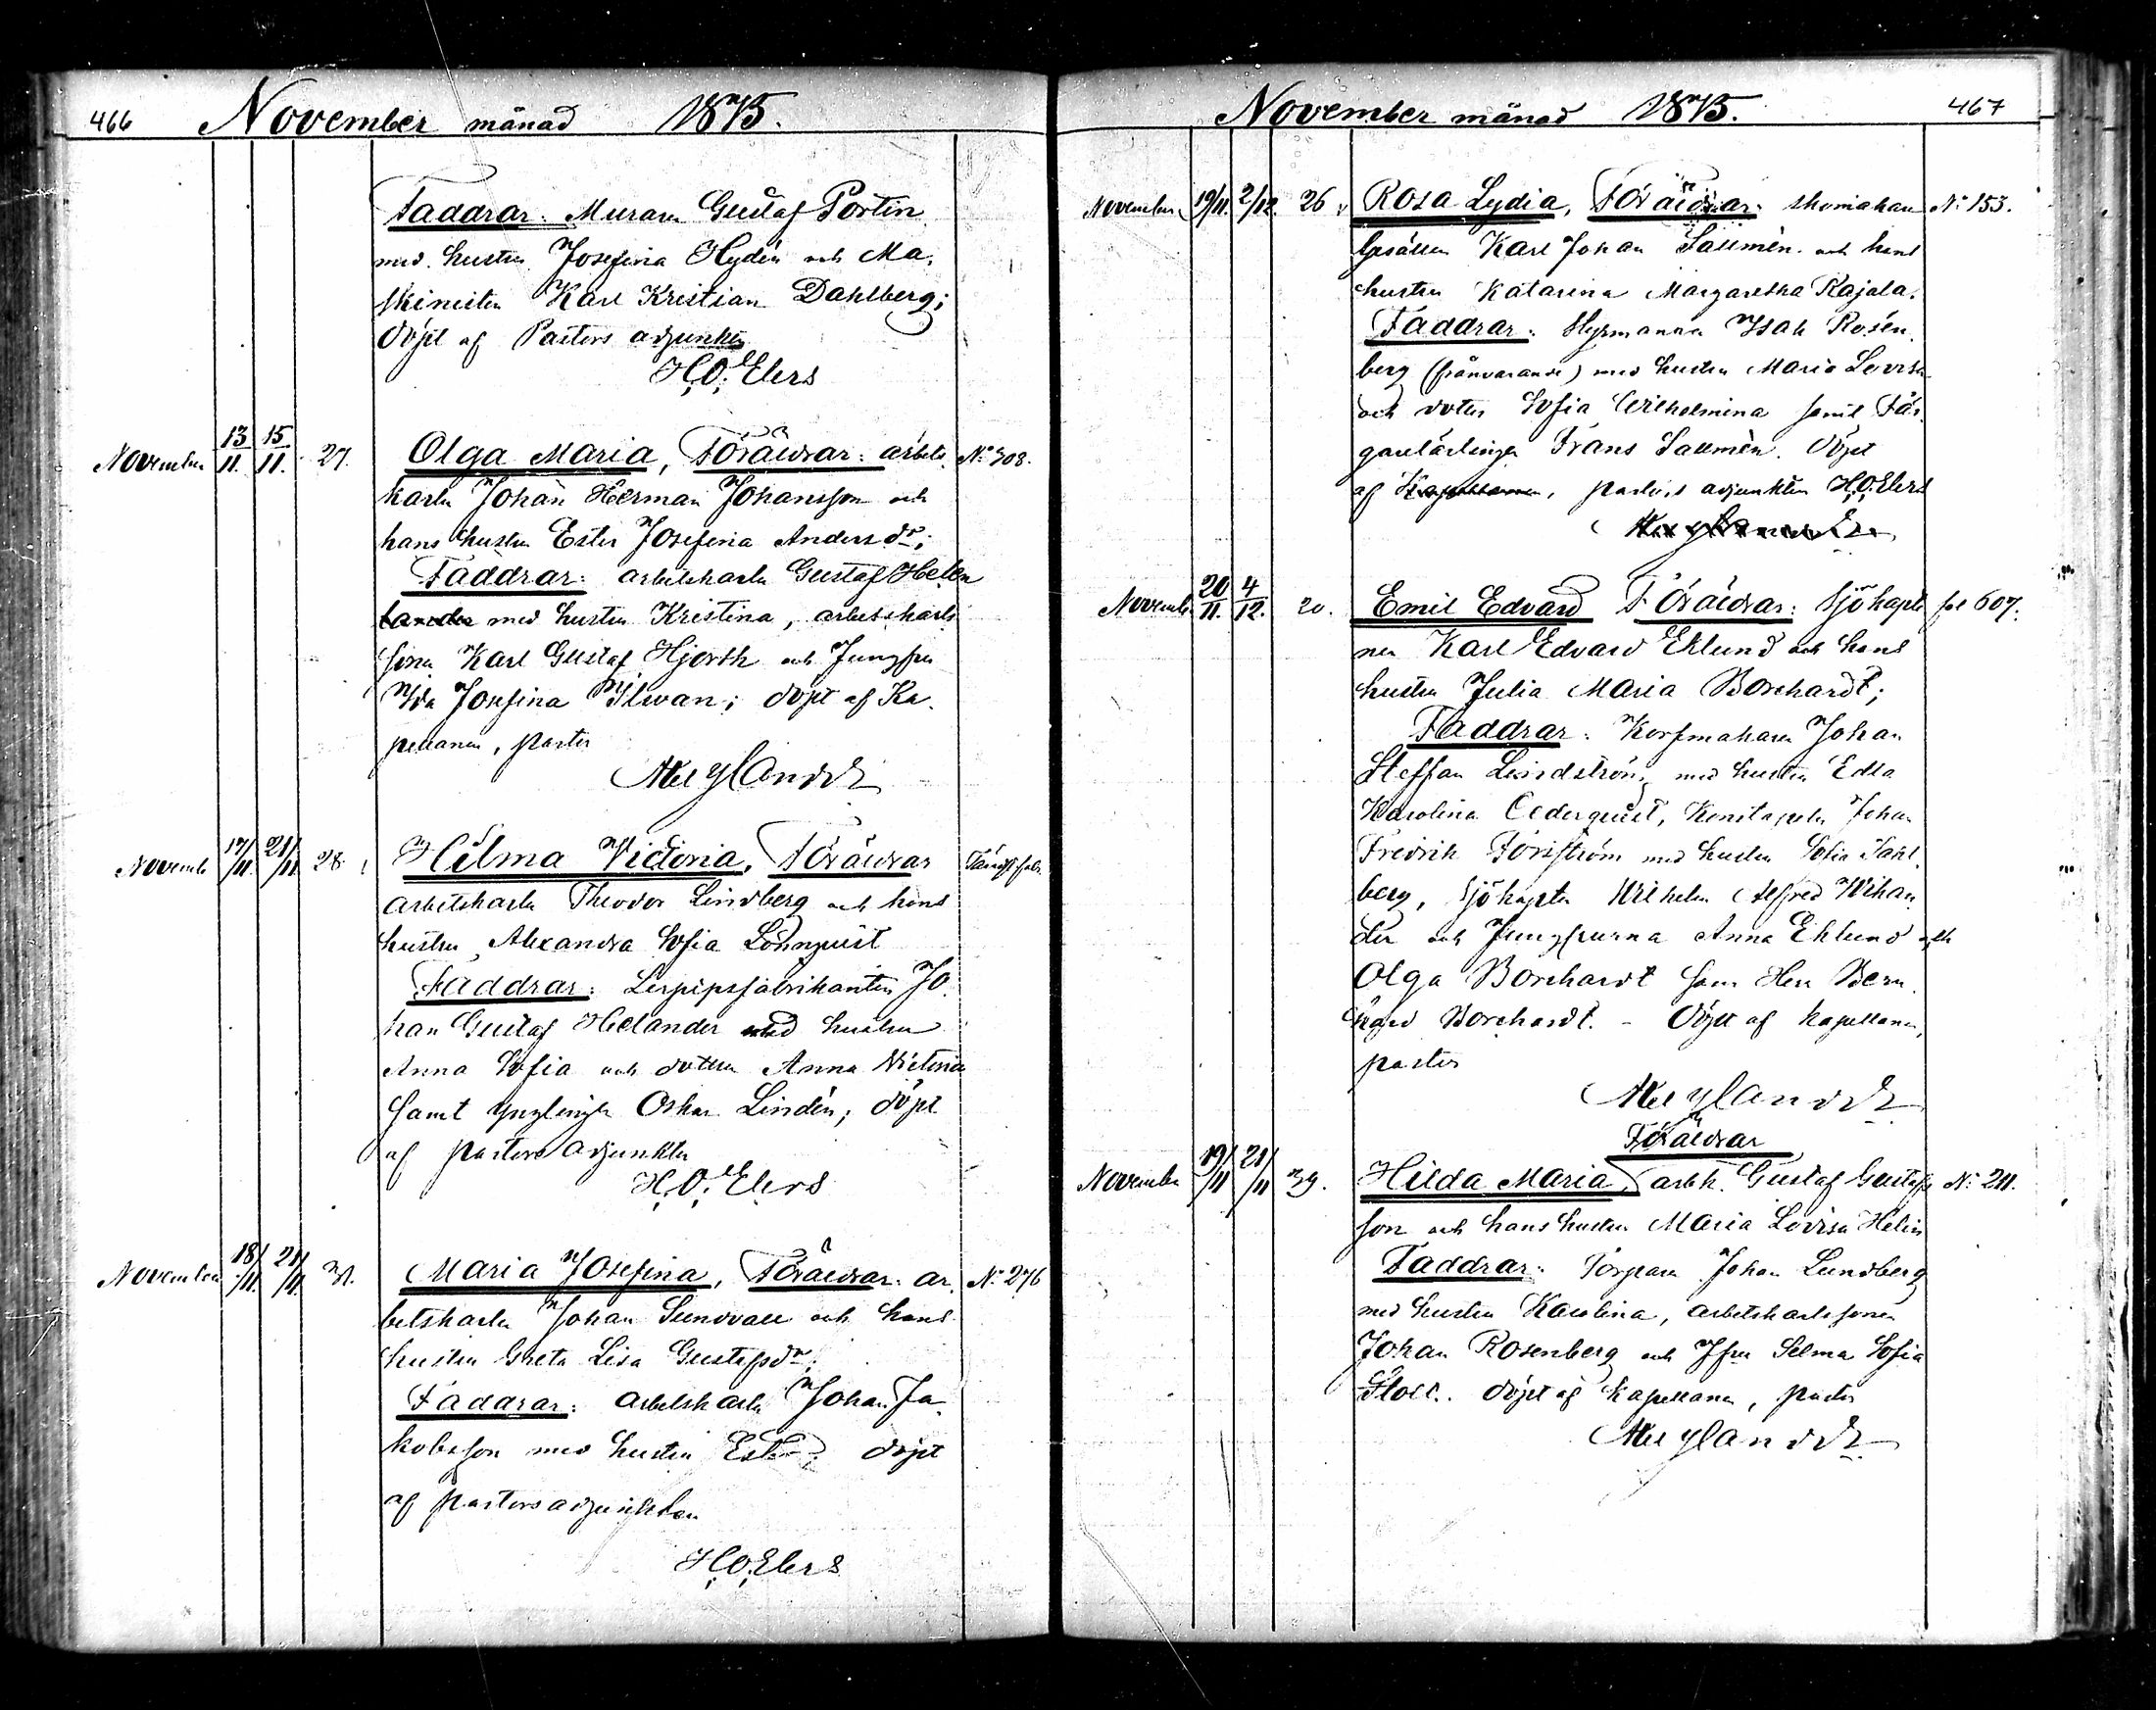 466 November månad 1875.
Faddrar: Muraren Gustaf Portin
med hustru Josefina Hydén och Ma-
skinisten Karl Kristian Dahlberg;
döpt af Pastors adjunkten
H. O. Elers
November 13/11. 15/11. 27. Olga Maria, Föräldrar: arbets- No 308.
karlen Johan Herman Johansson och
hans hustru Ester Josefina Andersdr;
Faddrar: arbetskarlen Gustaf Hellen
med hustru Kristina, arbetskarls
sonen Karl Gustaf Hjorth och Jungfru
Ida Josefina Ilvan; döpt af Ka-
pellanen, pastor
Mexlander
November 17/11 21/11 28. Hilma Victoria, Föräldrar
arbetskarlen Theodor Lindberg och hans
hustru Alexandra Sofia Lönnquist
Faddrar: Lerpipsfabrikanten Jo-
han Gustaf Helander med hustru
Anna Sofia och dottren Anna Victoria
samt ynglingen Oskar Lindén; döpt
af pastors adjunkten
H. O. Elers
November 18/11. 21/11. 31. Maria Josefina, Föräldrar: ar- No 276
betskarlen Johan Sundvall och hans
hustru Greta Lisa Gustafsdr;
Faddrar: arbetskarlen Johan Ja-
kobsson med hustru Ester; döpt
af pastorsadjunkten
H. O. Elers
November månad 1875. 467
November 19/11. 2/12. 26 Rosa Lydia, Föräldrar: skomakare No 153.
gesällen Karl Johan Sallmén och hans
hustru Katarina Margaretha Rajala.
Faddrar: Styrmannen Isak Rosen-
berg (frånvarande) med hustru Maria Lovisa
och dotter Sofia Wilhelmina samt Fär-
garelärlingen Frans Sallmén. Döpt
af Kapellanen, pastors adjunkten H. O. Elers
November 20/11. 4/12. 20. Emil Edvard Föräldrar: Sjökapte- pl 607.
nen Karl Edvard Eklund och hans
hustru Julia Maria Borchardt;
Faddrar: Korfmakaren Johan
Steffan Lindström med hustru Edla
Karolina Cederquist, Konstapeln Johan
Fredrik Forsström med hustru Sofia Sahl-
berg, Sjökapten Wilhelm Alfred Wikan-
der och Jungfrurna Anna Eklund och
Olga Borchardt samt Herr Bern-
hard Borchardt. - Döpt af kapellanen,
pastor
Mexlander
Föräldrar
November 19/11 21/11 39. Hilda Maria, arbk. Gustaf Gustafs- No 211.
son och hans hustru Maria Lovisa Helin
Faddrar: Torparen Johan Lundberg
med hustru Karolina, arbetskarlssonen
Johan Rosenberg och Jfru Selma Sofia
Floec. Döpt af kapellanen, pastor
Mexlander